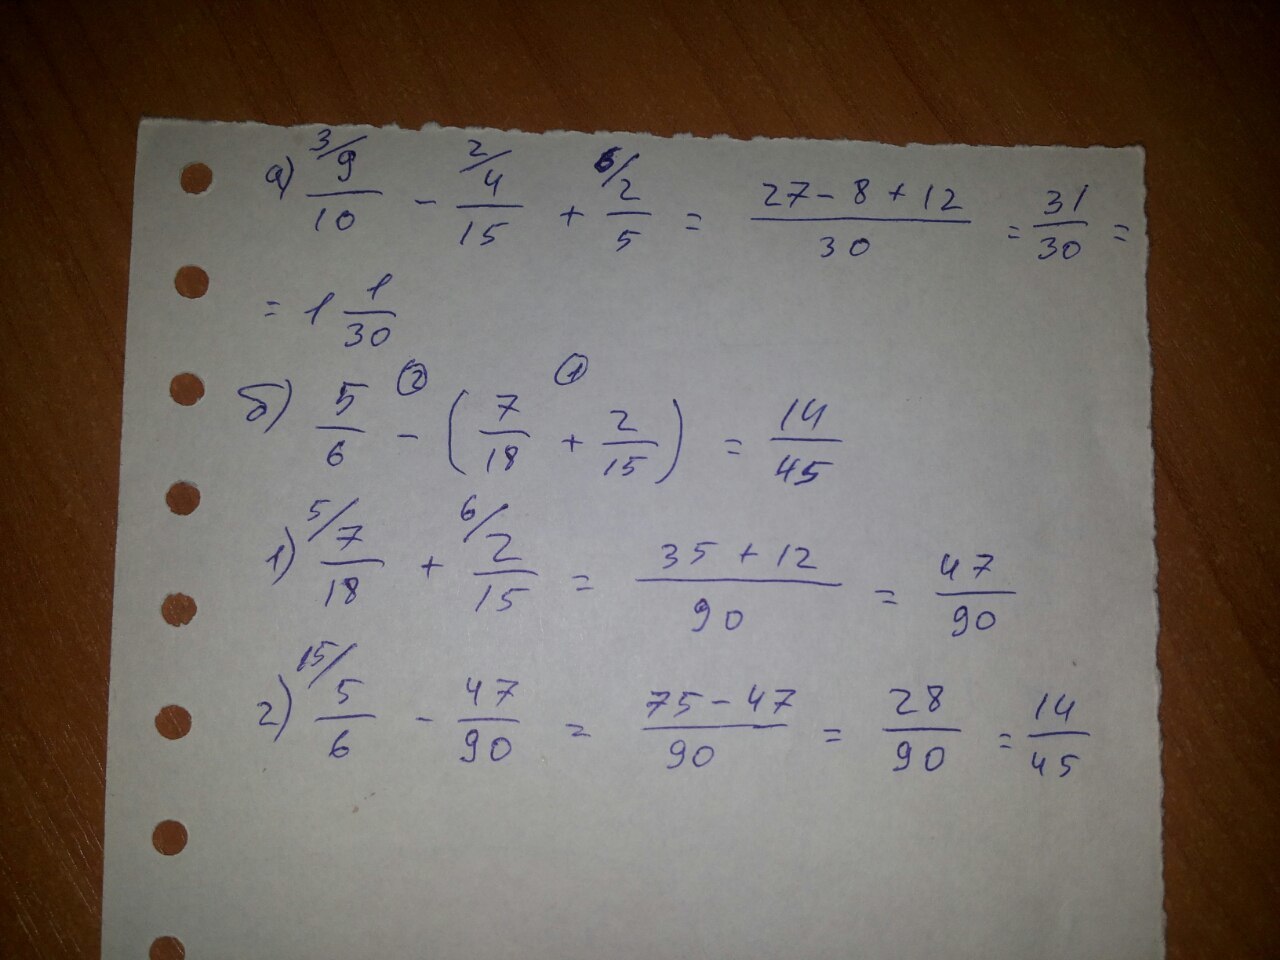 а) ³/9/10 - ²/4/15 + ⁶/2/5 = (27 - 8 + 12)/30 = 31/30 =
= 1 1/30
б) 5/6 ② - (7/18 ① + 2/15) = 14/45
1) ⁵/7/18 + ⁶/2/15 = (35 + 12)/90 = 47/90
2) ¹⁵/5/6 - 47/90 = (75 - 47)/90 = 28/90 = 14/45